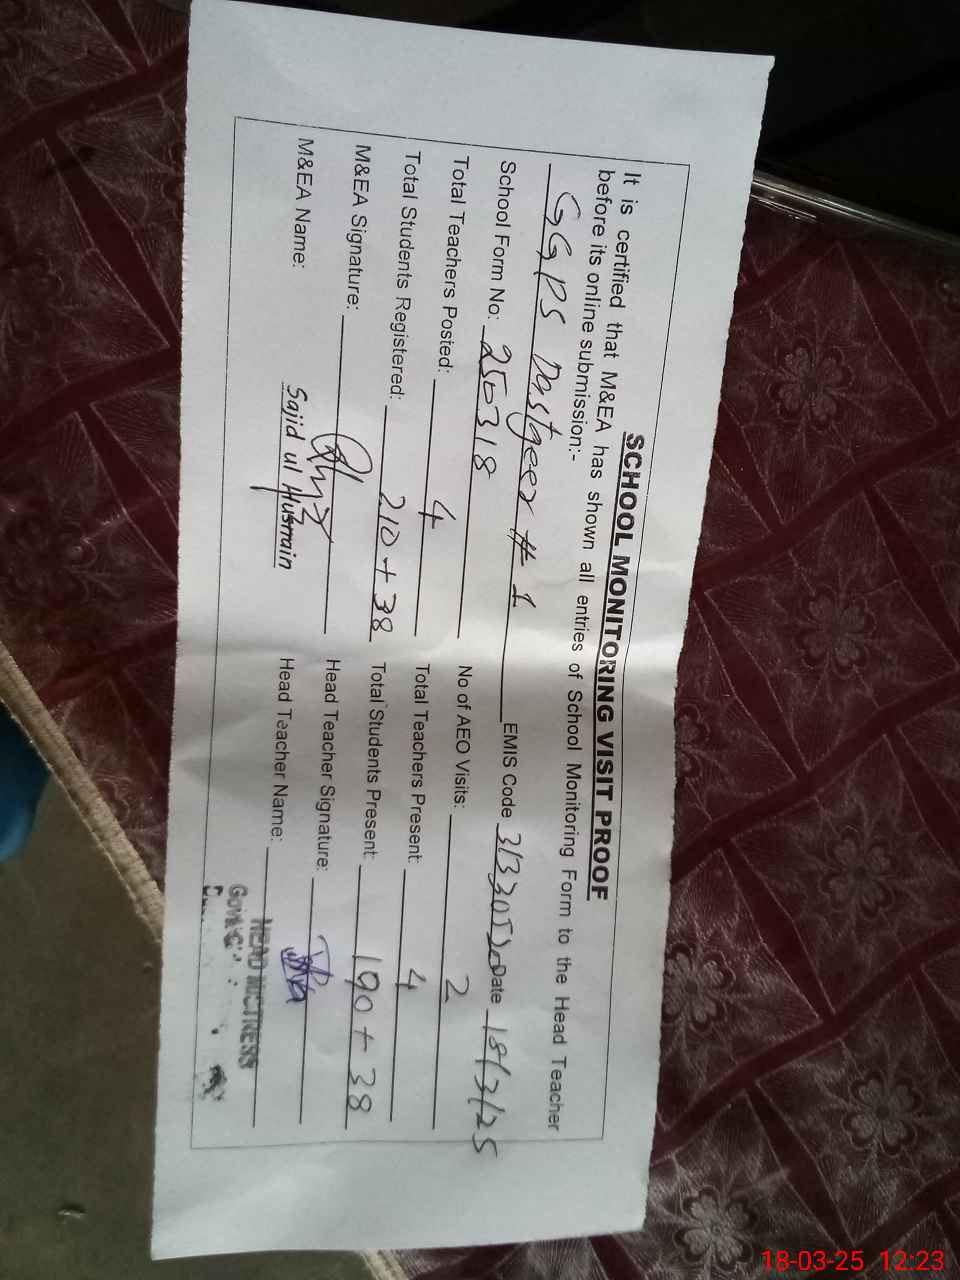 SCHOOL MONITORING VISIT PROOF
It is certified that M&EA has shown all entries of School Monitoring Form to the Head Teacher
before its online submission:-
GGPS Dastgeer # 1 EMIS Code 31330522 Date 18/3/25
School Form No: 250318 No of AEO Visits: 2
Total Teachers Posted: 4 Total Teachers Present: 4
Total Students Registered: 210+38 Total Students Present: 190+38
M&EA Signature: Head Teacher Signature:
M&EA Name: Sajid ul Husnain Head Teacher Name:
HEAD MISTRESS
18-03-25 12:23